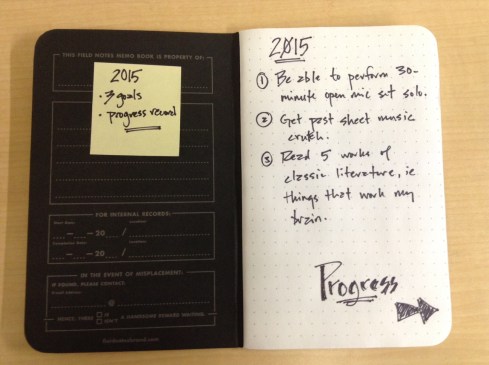 THIS FIELD NOTES MEMO BOOK IS PROPERTY OF:
2015
• 3 goals
• progress record
FOR INTERNAL RECORDS:
- - 20 /
- - 20 /
IN THE EVENT OF MISPLACEMENT:
IF FOUND, PLEASE CONTACT:
@
A HANDSOME REWARD WAITING.
2015
① Be able to perform 30-
minute open mic set solo.
② Get past sheet music
crutch.
③ Read 5 works of
classic literature, ie
things that work my
brain.
Progress